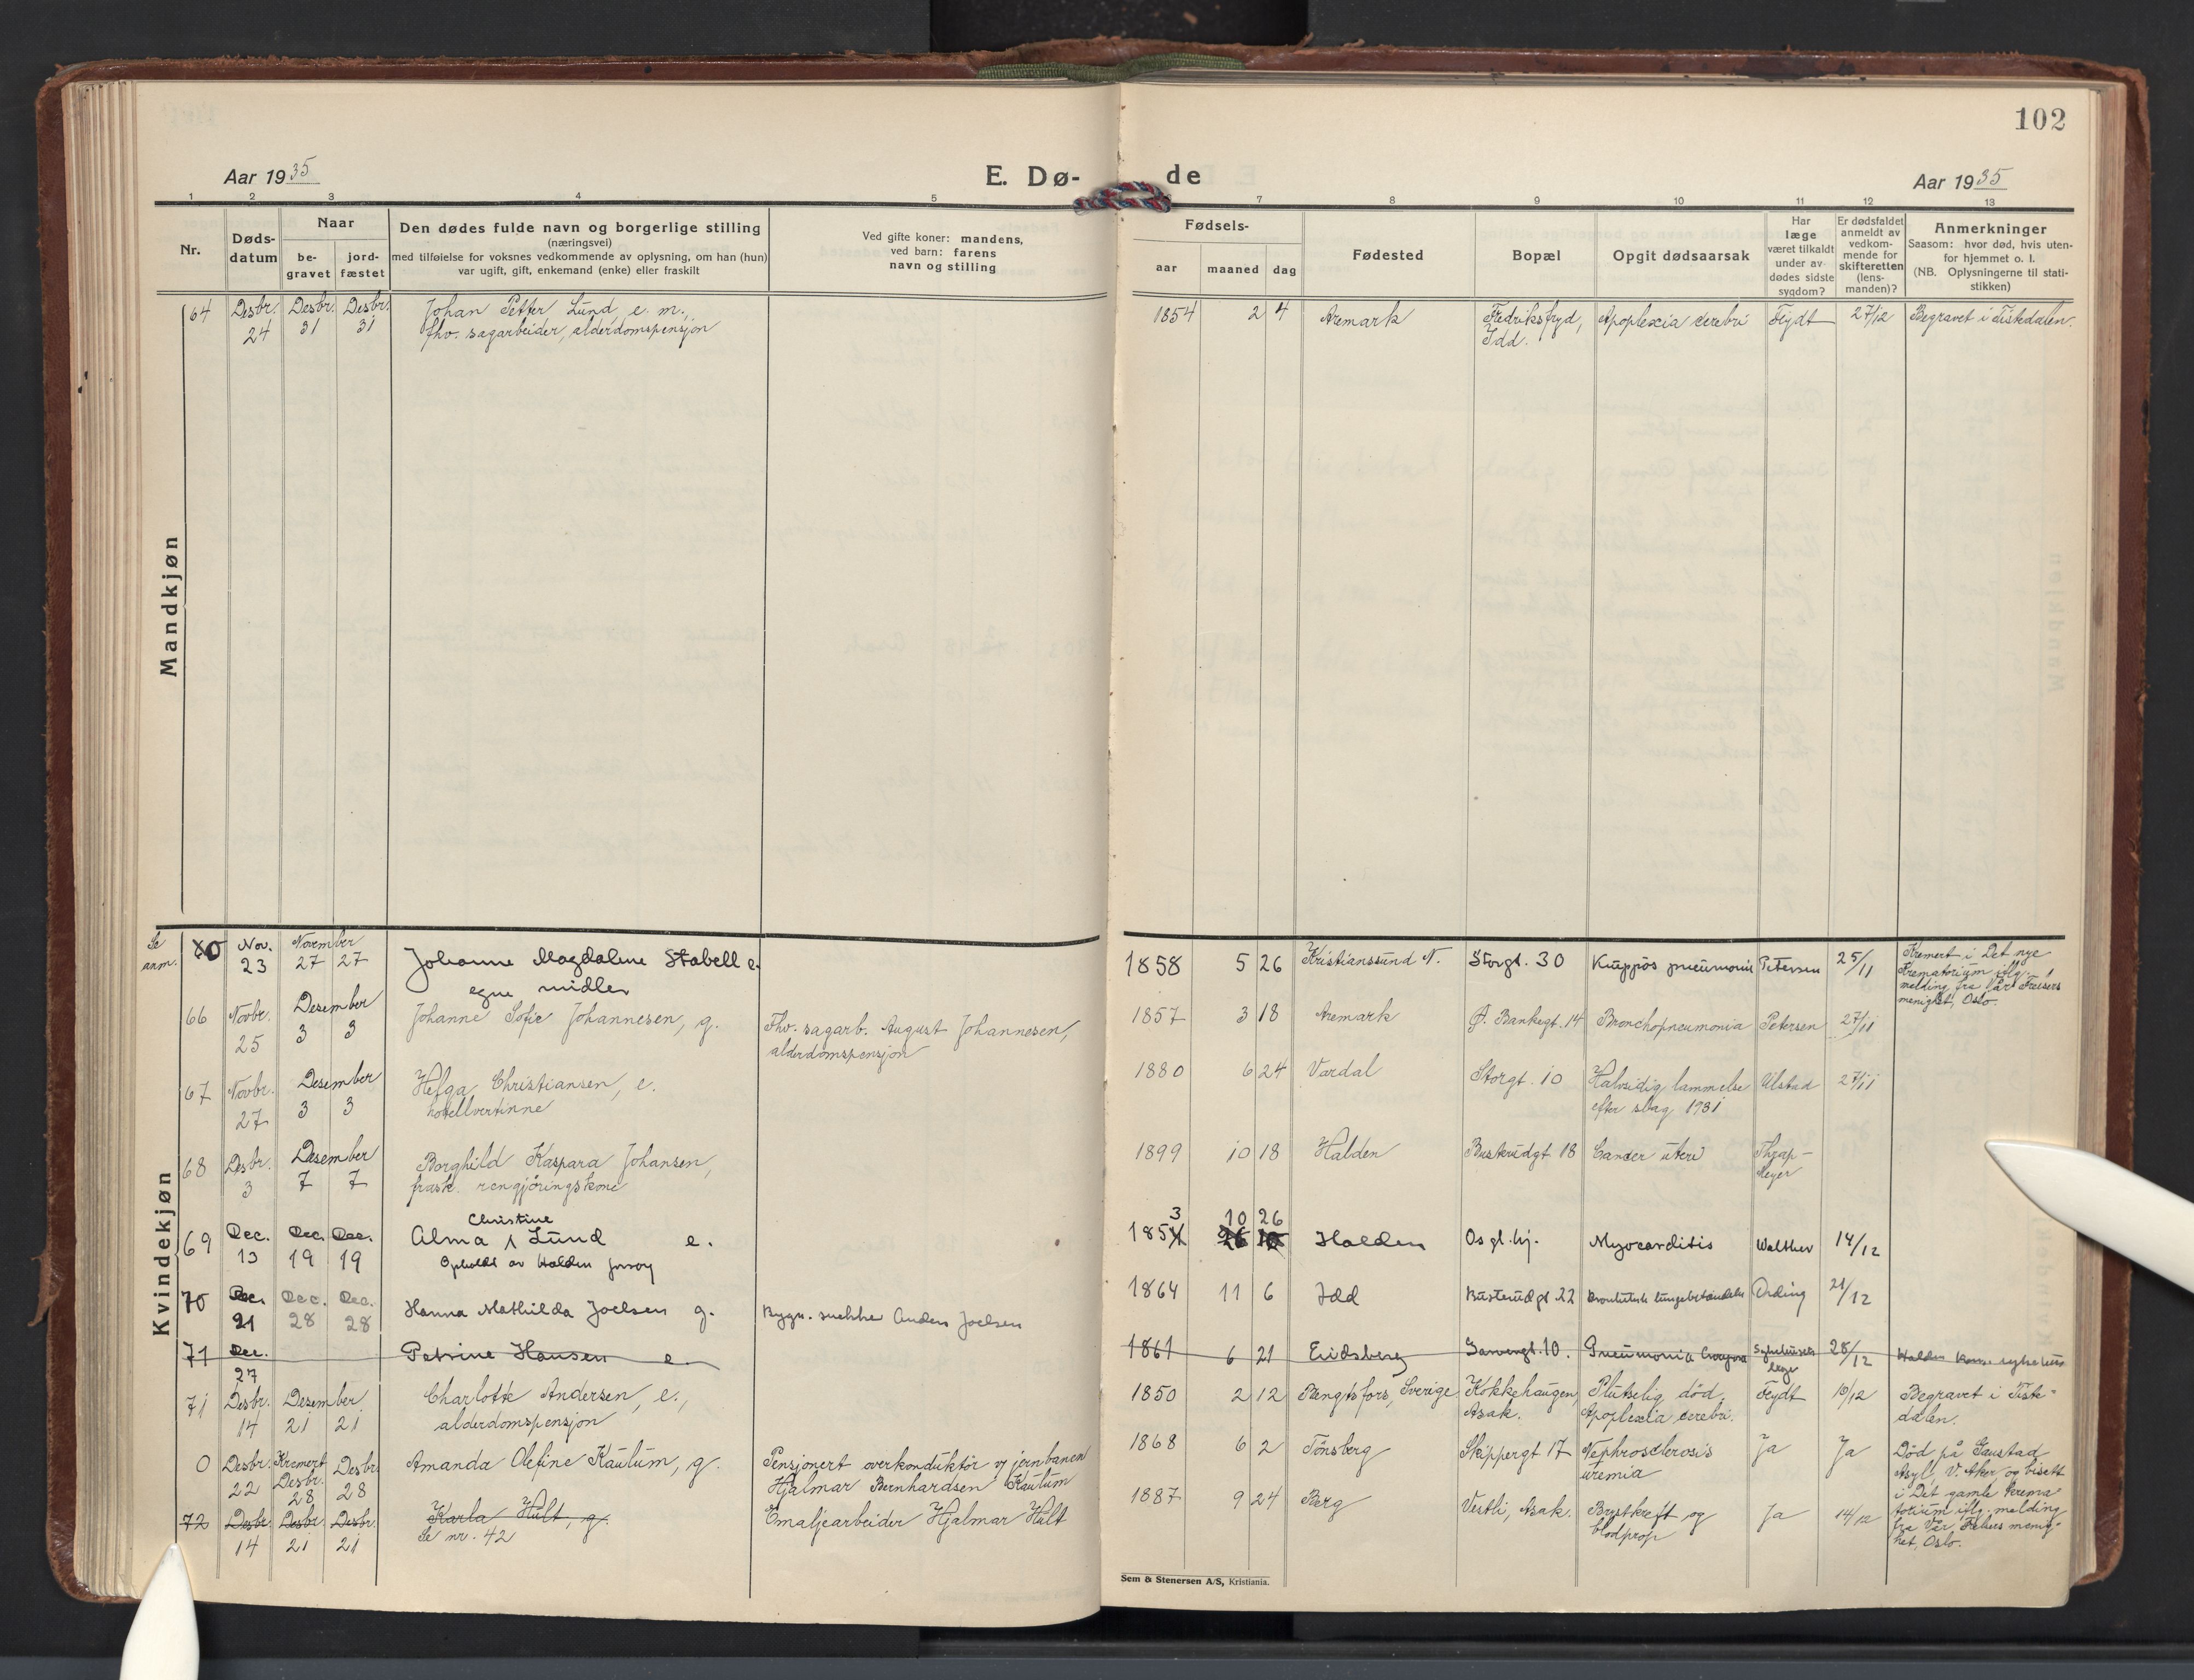 102
Aar 1935
E. Dø-
de
Aar 1935
1 2 3 4 5 7 8 9 10 11 12 13
Nr.
Døds-
datum
Naar
be-
gravet
jord-
fæstet
Den dødes fulde navn og borgerlige stilling
(næringsvei)
med tilføielse for voksnes vedkommende av oplysning, om han (hun)
var ugift, gift, enkemand (enke) eller fraskilt
Ved gifte koner: mandens,
ved barn: farens
navn og stilling
Fødsels-
aar maaned dag
Fødested
Bopæl
Opgit dødsaarsak
Har
læge
været tilkaldt
under av-
dødes sidste
sygdom?
Er dødsfaldet
anmeldt av
vedkom-
mende for
skifteretten
(lens-
manden)?
Anmerkninger
Saasom: hvor død, hvis uten-
for hjemmet o. l.
(NB. Oplysningerne til stati-
stikken)
Mandkjøn
64 Desbr. Desbr. Desbr. Johan Petter Lund, e. m., 1854 2 4 Aremark Fredriksfryd, Apoplexia cerebri Feydt 27/12 Begravet i Tistedalen.
24 31 31 fhv. sagarbeider, alderdomspensjon Idd.
Kvindekjøn
Se Nov. November Johanne Magdalene Stabell e. 1858 5 26 Kristianssund N. Storgt. 30 Kruppøs pneumoni Petersen 25/11 Kremert i Det nye
anm. 0 23 27 27 egne midler Krematorium iflg.
melding fra Vår Frelsers
menighet, Oslo.
66 Novbr. Desember Johanne Sofie Johannesen, g. Fhv. sagarb. August Johannesen, 1857 3 18 Aremark Ø. Bankegt. 14 Bronchopneumonia Petersen 27/11
25 3 3 alderdomspensjon
67 Novbr. Desember Helga Christiansen, e. 1880 6 24 Vardal Storgt. 10 Halvsidig lammelse Ulstad 27/11
27 3 3 hotellvertinne efter slag 1931
68 Desbr. Desember Borghild Kaspara Johansen, 1899 10 18 Halden Busterudgt 18 Cancer uteri Thrap-
3 7 7 frask. rengjøringskone Meyer
Christine 3 10 26
69 Dec. Dec. Dec. Alma Lund e. 1854 26 10 Halden Os gl. hj. Myocarditis Walther 14/12
13 19 19 Opholdt av Halden forsorg
70 Dec. Dec. Dec. Hanna Mathilda Joelsen g. Bygn. snekker Anders Joelsen 1864 11 6 Idd Busterudgt 22 lungebetændelse Ording 21/12
21 28 28
71 Dec. Petrine Hansen e. 1861 6 21 Eidsberg 10. Pneumonia Crouposa Sykehusets 28/12 Halden Komm. sykehus
27 lege
71 Desbr. Desember Charlotte Andersen, e., 1850 2 12 Bengtsfors, Sverige Kokkehaugen, Plutselig død, Feydt 16/12 Begravet i Tiste-
14 21 21 alderdomspensjon Asak. Apoplexia cerebri. dalen.
0 Desbr. Kremert Desbr. Amanda Olefine Kaulum, g. Pensjonert overkonduktør v/ jernbanen 1868 6 2 Tønsberg Skippergt 17 Nephrosclerosis Ja Ja Død på Gaustad
22 Desbr. 28 28 Hjalmar Bernhardsen Kaulum uremia Asyl, V. Aker, og bisatt
i Det gamle krema-
torium iflg. melding
fra Vår Frelsers menig-
het, Oslo.
72 Desbr. Desbr. Desbr. Karla Hult, g. Emaljearbeider Hjalmar Hult 1887 9 24 Berg Vestli, Asak. Brystkreft og Ja 14/12
14 21 21 Se nr. 42 blodprop
Sem & Stenersen A/S, Kristiania.